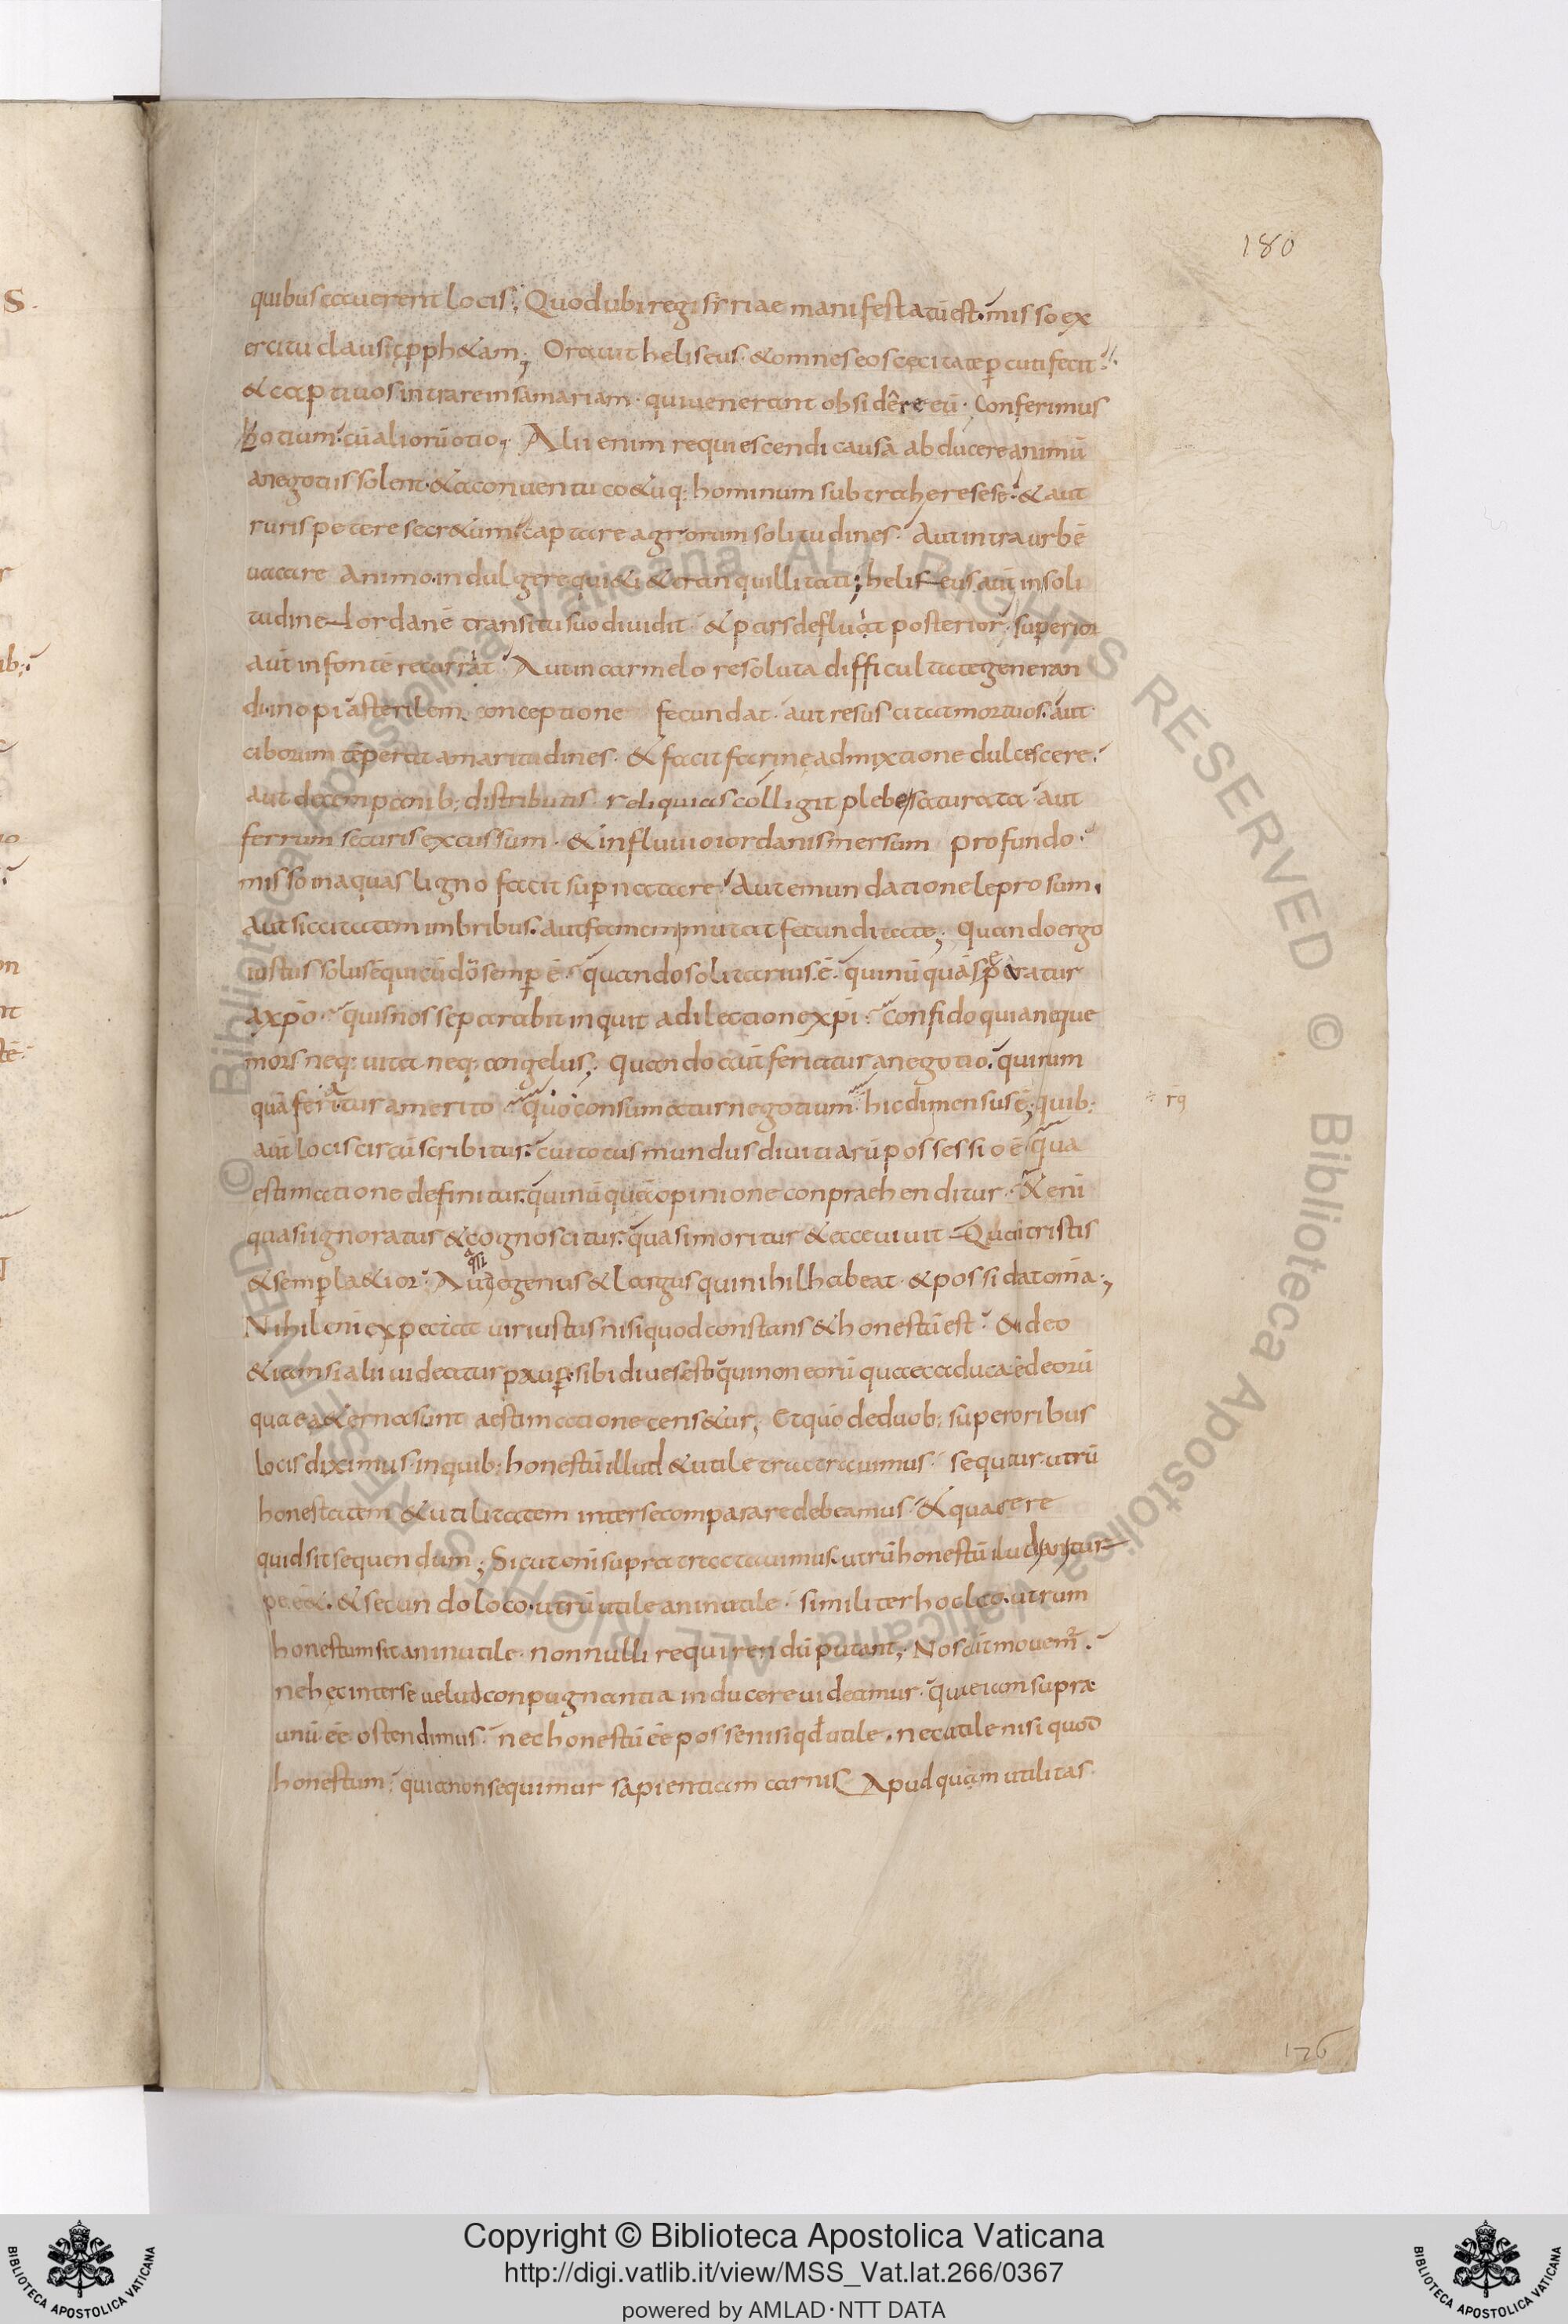 180
quibus cauerent locis; Quod ubi regi syriae manifestatū est. misso ex
ercitu clausit pph&am; Orauit heliseus. & omnes eos cęcitate pcuti fecit.
& captiuos intrare in samariam. qui uenerant obsidêre eū. Conferimus
h otium cū aliorū otio; Alii enim requiescendi causa abducere animū
a negotiis solent. & a conuentu co&uq; hominum subtrahere sese. & aut
ruris petere secr&um. captare agrorum solitudines. Aut intra urbē
uacare animo. indulgere qui&i & tranquillitati; heliseus aūt in soli
tudine Iordanē transitu suo diuidit. & pars defluat posterior. superior
aūt in fontē recurrat. Aut in carmelo resoluta difficultate generan
di. inopi asterilem conceptione fecundat. aut resuscitat mortuos. aut
ciborum tēperat amaritudines. & facit farinę admixtione dulcescere.
aut decem panib; distributis reliquias colligit plebe saturata. aut
ferrum securis excussum. & in fluuio iordanis mersum profundo.
misso in aquas ligno facit supnatare. Aut emundatione leprosum.
Aut siccitatem imbribus. aut famem mutat fecunditate; Quando ergo
iustus solus ē qui cū dō semp ē. quando solitarius ē. qui nū quā separatur
a xpo. quis nos separabit inquit a dilectione xpi. Confido quia neque
mors neq; uita neq; angelus; Quando aūt feriatur a negotio. qui num
quā feriatur a merito quo consumatur negotium. hic dimensus ē; quib;
rq
aūt locis circūscribitur. cui totus mundus diuitiarū possessio ē. qua
estimatione definitur. qui nū quā opinione conpraehenditur. &enī
quasi ignoratus & cognoscitur. quasi moritur & ecce uiuit. Quasi tristis
& semp la&ior. Aut egenus & largus qui nihil habeat. & possidat omīa;
Nihil enī expectat uir iustus nisi quod constans & honestū est. & ideo
& iam si alii uideatur paup. sibi diues est. qui non eorū quae caduca sed eorū
quae a&erna sunt aestimatione cens&ur; Et quō de duob; superoribus
locis diximus. in quib; honestū illud & utile tractauimus. sequitur. utrū
honestatem & utilitatem inter se comparare debeamus. & quaerere
quid sit sequendum; Sicut enī supra tractauimus. utrū honestū illud an tur
pe ēē&. & secundo loco. utrū utile an inutile. similiter hoc loco. utrum
honestum sit an inutile. nonnulli requirendū putant; Nos aūt mouem.
ne hęc inter se uelud conpugnantia inducere uideamur. quae iam supra
unū ēē ostendimus. nec honestū ēē posse nisi qd utile. nec utile nisi quod
honestum. quia non sequimur sapientiam carnis. Apud quam utilitas.
176
© Biblioteca Apostolica Vaticana ALL RIGHTS RESERVED © Biblioteca Apostolica Vaticana ALL RIGHTS RESERVED
Copyright © Biblioteca Apostolica Vaticana
http://digi.vatlib.it/view/MSS_Vat.lat.266/0367
powered by AMLAD·NTT DATA
BIBLIOTECA APOSTOLICA VATICANA
BIBLIOTECA APOSTOLICA VATICANA